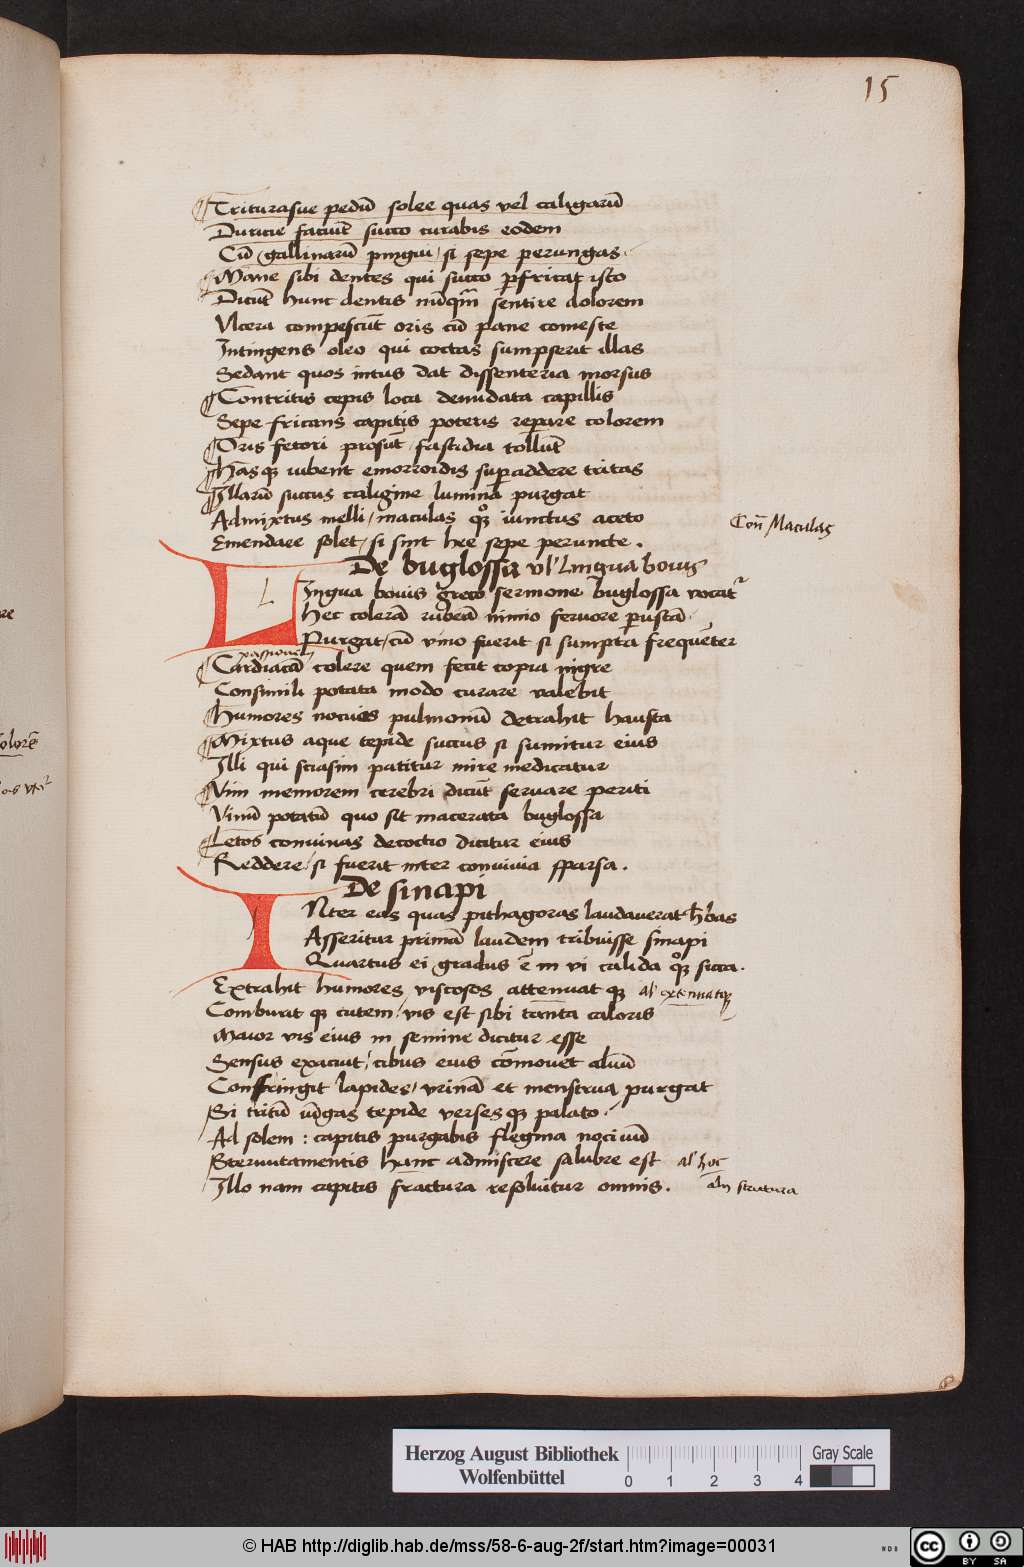 15
¶Triturasue pedū solee quas vel caligarū
Duricie faciūt succo curabis eodem
Cū gallinarū pingui / si sepe perungas.
¶Mane sibi dentes qui succo ꝑfricat isto
Dicūt hunc dentis nūqm̄ sentire dolorem
Vlcera compescūt oris cū pane comeste
Intingens oleo qui coctas sumpserit illas
Sedant quos intus dat dissenteria morsus
¶Contritis cepis loca denudata capillis
Sepe fricans capitis poteris reꝑare colorem
¶Oris fetori prosūt / fastidia tollūt
¶Hasqꝫ iubent emorroidis suꝑaddere tritas
¶Illarū succus caligine lumina purgat
Admixtus melli / maculas qͦꝫ iunctus aceto
Con̄ Maculas
Emendare solet / si sint hee sepe peruncte.
De buglossa vl' Lingua bouis
L
Lingua bouis greco sermone buglossa vocat᷑
Hec colerā rubeā nimio feruore ꝑustā
Purgat / cū vino fuerit si sumpta frequēter
passionem
¶Cardiacā colere quem fecit copia nigre
Consimili potata modo curare valebit
¶Humores nocuos pulmonū detrahit hausta
¶Mixtus aque tepide succus si sumitur eius
Illi qui sciasim patitur mire medicatur
¶Vim memorem cerebri dicūt seruare periti
Vinū potatū quo sit macerata buglossa
¶Letos conuiuas decoctio dicitur eius
Reddere / si fuerit inter conuiuia sparsa.
De sinapi
INter eas quas pithagoras laudauerat h̄bas
Asseritur primā laudem tribuisse sinapi
Quartus ei gradus ē in vi calida qͦꝫ sicca.
Extrahit humores viscosos attenuat qꝫ al' extenuatqꝫ
Comburit qꝫ cutem / vis est sibi tanta caloris
Maior vis eius in semine dicitur esse
Sensus exacuit / cibus eius cōmouet aluū
Confringit lapides / vrinā et menstrua purgat
Si tritū iūgas tepide versesqꝫ palato.
Ad solem : capitis purgabis flegma nociuū
Sternutamentis hanc admiscere salubre est al' hoc
Illo nam capitis fractura resoluitur omnis. al'
Herzog August Bibliothek
Wolfenbüttel
0 1 2 3 4
Gray Scale
© HAB http://diglib.hab.de/mss/58-6-aug-2f/start.htm?image=00031
cc BY SA